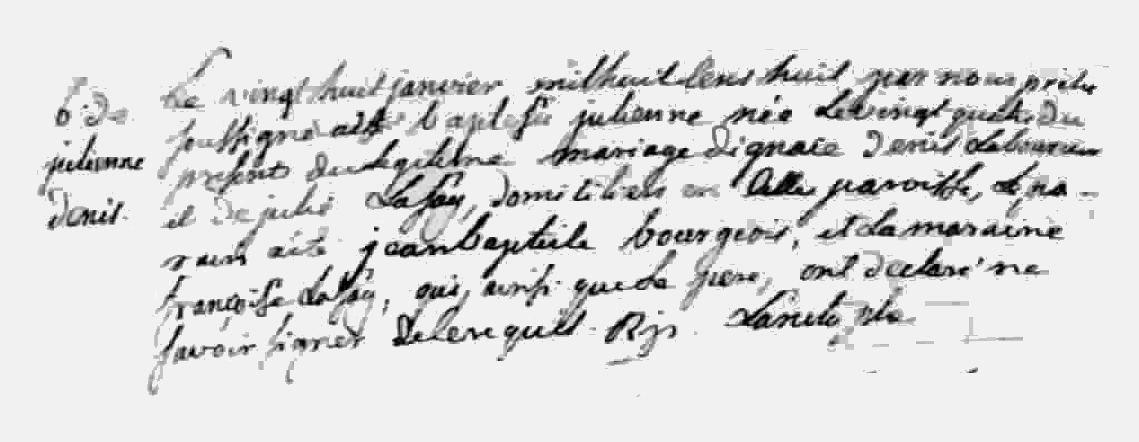 b. de
julienne
denis.
Le vingt huit janvier mil huit cens huit par nous prêtre
soussigné a été baptisée julienne née le vingt quatre du
présent du legitime mariage d'ignace denis laboureur
et de julie Lafay, domiciliés en cette paroisse, Le pa-
rain a été jean baptiste bourgeois, et La maraine
françoise Lafay, qui, ainsi que Le pere, ont declaré ne
savoir signer de ce requis. Rp.